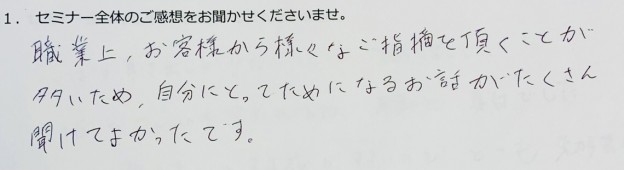 1. セミナー全体のご感想をお聞かせくださいませ。
職業上、お客様から様々なご指摘を頂くことが
多いため、自分にとってためになるお話がたくさん
聞けてよかったです。